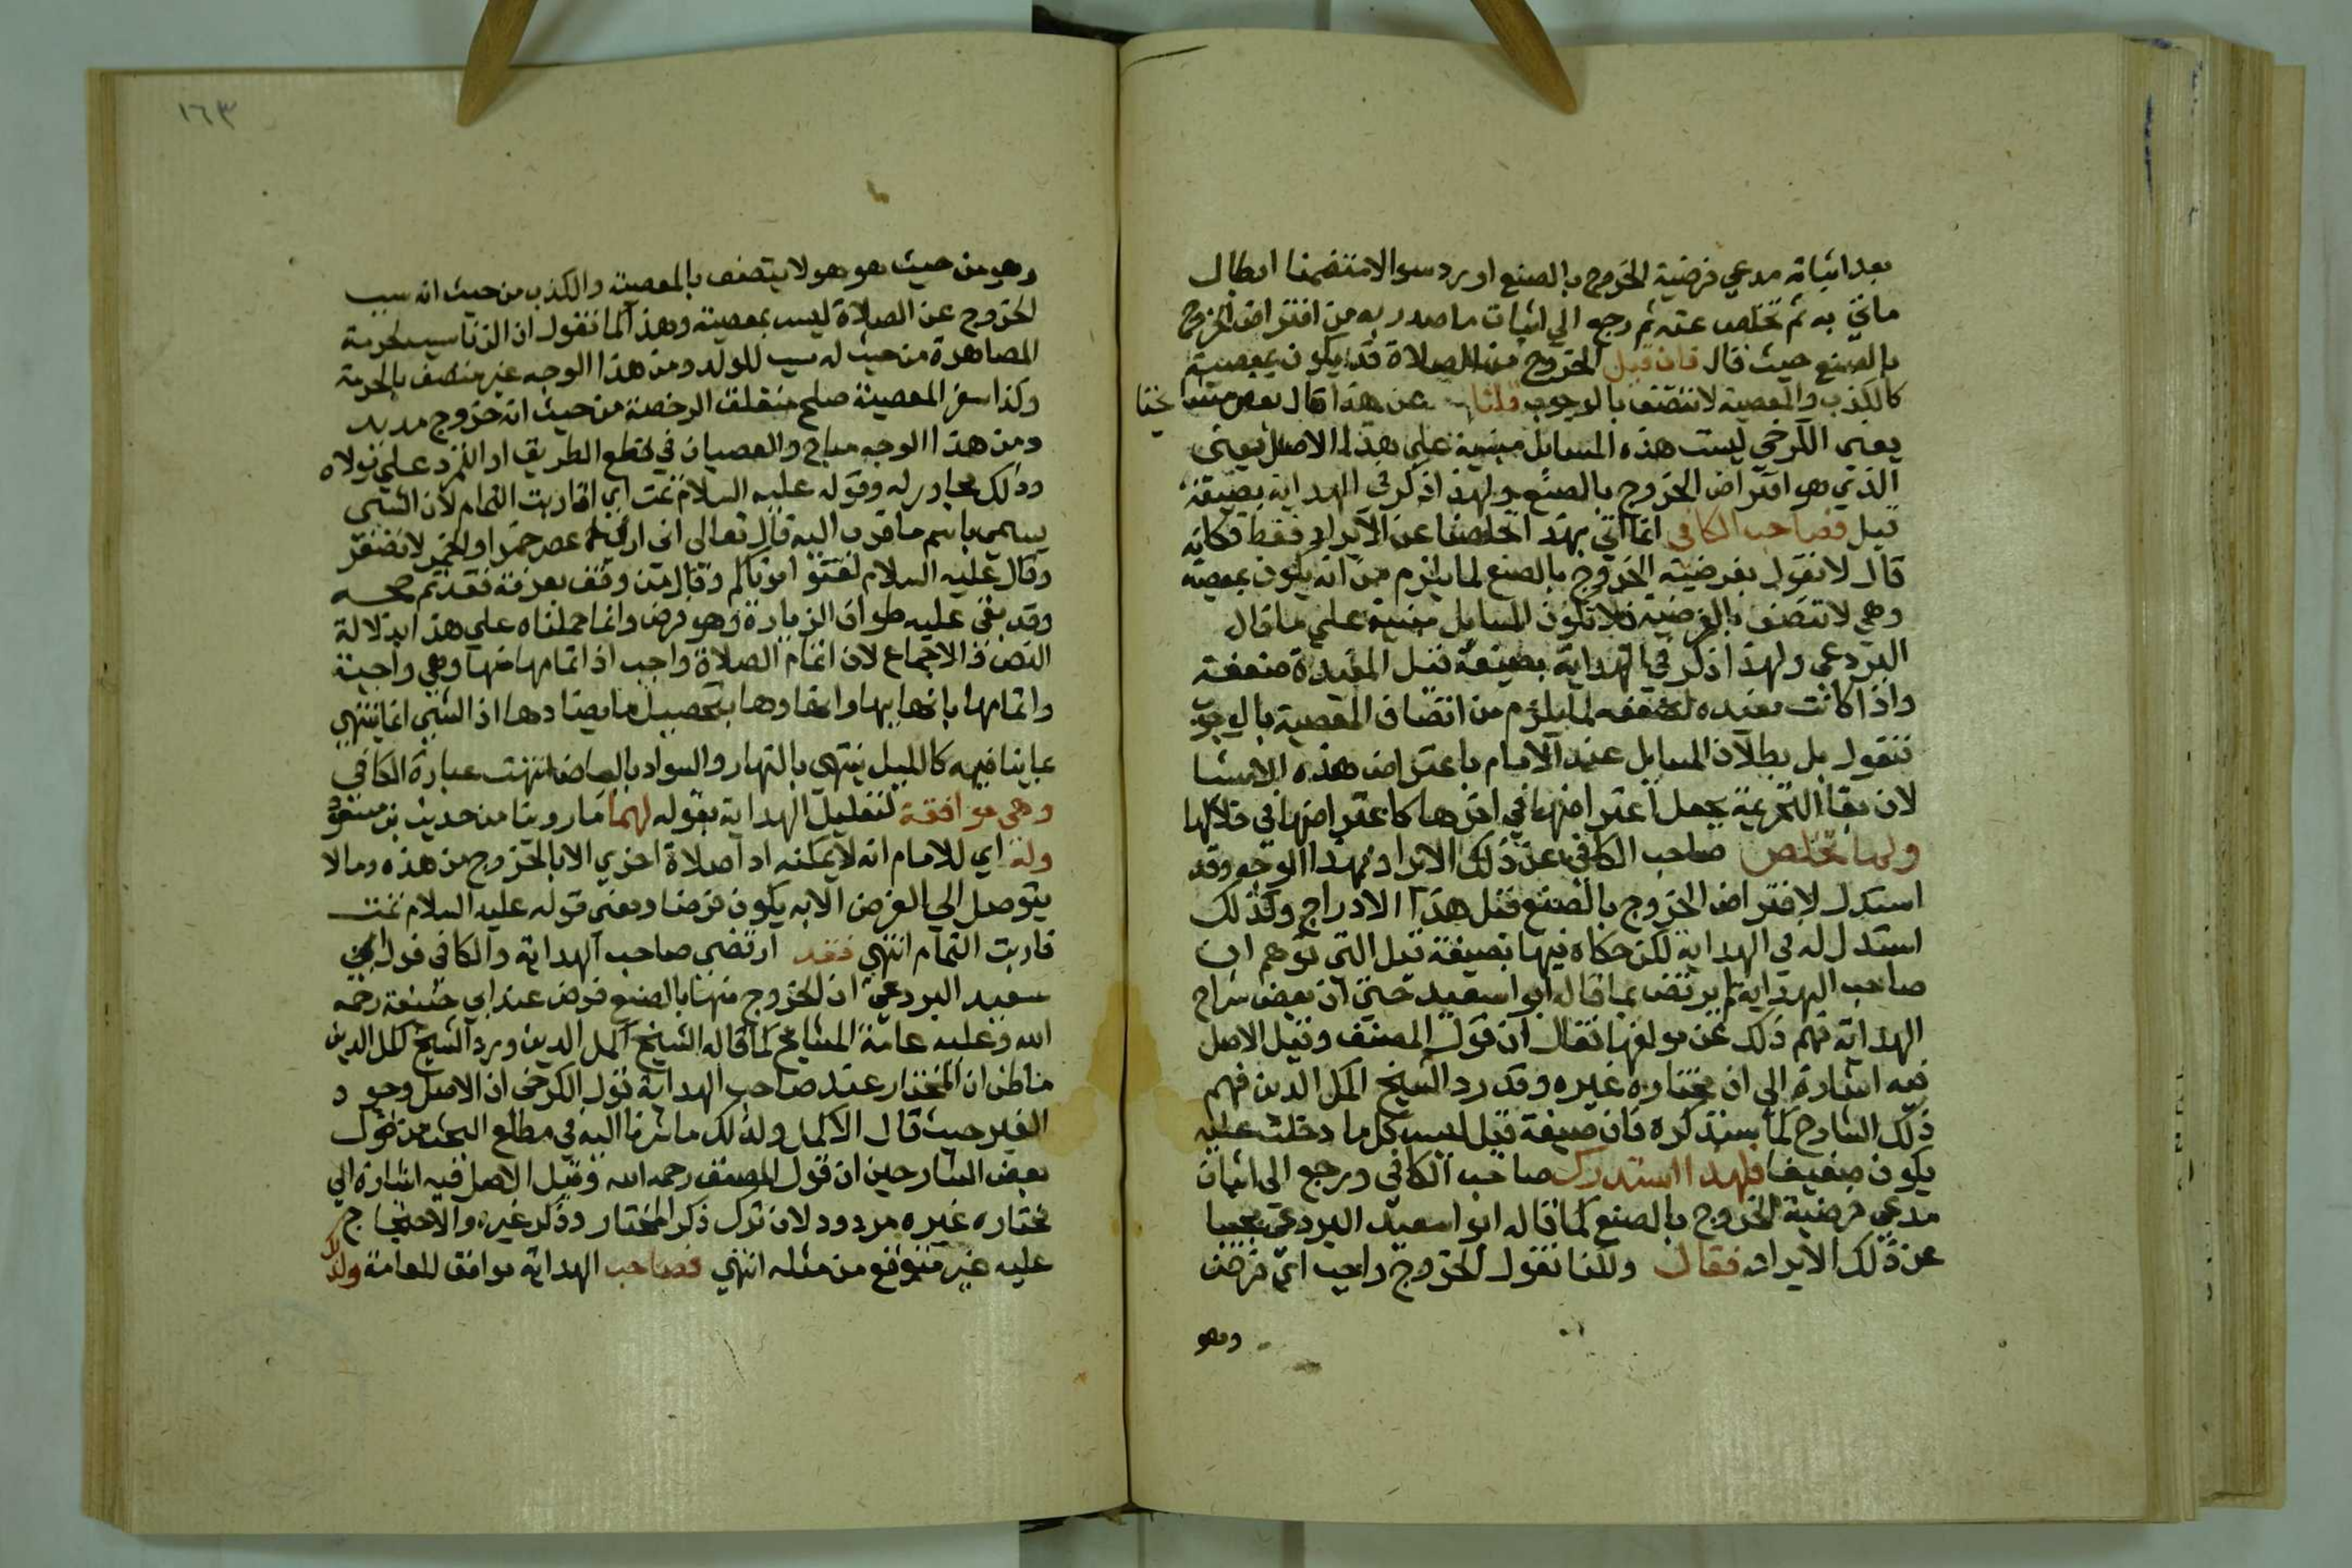 بعد اثباته مدعي فرضية الخروج بالصنع اورد سوالا متضمنا ابطال
ماتي به ثم تخلص عنه ثم رجع الي اثبات ما صدر به من افتراض الخروج
بالصنع حيث قال فان قيل الخروج من الصلاة قد يكون بمعصية
كالكذب والمعصية لا تتصف بالوجوب قلنا عن هذا قال بعض مشايخنا
يعني الكرخي ليست هذه المسايل مبنية علي هذا الاصل يعني
الذي هو افتراض الخروج بالصنع ولهذا ذكر في الهداية بصيغة
قيل فصاحب الكافي انما اتي بهذا تخلصا عن الايراد فقط فكانه
قال لا نقول بفرضية الخروج بالصنع لما يلزم من انه يكون بمعصية
وهي لا تتصف بالفرضية فلا تكون المسايل مبنية علي ما قال
البردعي ولهذا ذكر في الهداية بصيغة قيل المفيدة ضعفه
واذا كانت مفيده لضعفه لما يلزم من اتصاف المعصية بالوجوب
نقول بل بطلان المسايل عند الامام باعتراض هذه الاشيا
لان بقا التحريمة يجعل اعتراضها في اخرها كاعتراضها في خلالها
ولما تخلص صاحب الكافي عن ذلك الايراد بهذا الوجه وقد
استدل لافتراض الخروج بالصنع قبل هذا الادراج وكذلك
استدل له في الهداية لكن حكاه فيها بصيغة قيل التي توهم ان
صاحب الهداية لم يرتض بما قاله ابو اسعيد حتي ان بعض شراح
الهداية فهم ذلك عن مولفها فقال ان قول المصنف وقيل الاصل
فيه اشارة الي ان مختاره غيره وقد رد الشيخ اكمل الدين فهم
ذلك الشارح كما سنذكره فان صيغة قيل ليس كل ما دخلت عليه
يكون ضعيفا فلهذا استدرك صاحب الكافي ورجع الي اثبات
مدعي فرضية الخروج بالصنع كما قاله ابو اسعيد البردعي مجيبا
عن ذلك الايراد فقال ولكنا نقول الخروج واجب اي فرض
وهو
١٦٣
وهو من حيث هو هو لا يتصف بالمعصية والكذب من حيث انه سبب
الخروج عن الصلاة ليس بمعصية وهذا كما نقول ان الزنا سبب لحرمة
المصاهرة من حيث انه سبب للولد ومن هذا الوجه غير متصف بالحرمة
وكذا سفر المعصية صلح متعلق الرخصة من حيث انه خروج مديد
ومن هذا الوجه مباح والعصيان في قطع الطريق او التمرد علي مولاه
وذلك مجاور له وقوله عليه السلام تمت اي قاربت التمام لان الشي
يسمي باسم ما قرب اليه قال تعالي اني اراني اعصر خمرا والخمر لا تعصر
وقال عليه السلام لقنوا موتاكم وقال من وقف بعرفة فقد تم حجه
وقد بقي عليه طواف الزيارة وهو فرض وانما حملناه علي هذا بدلالة
النص والاجماع لان اتمام الصلاة واجب اذ اتمامها منها وهي واجبة
واتمامها بانهايها وانهاوها بتحصيل ما يضادها اذ الشي انما ينتهي
بما ينافيه كالليل ينتهي بالنهار والسواد بالبياض انتهت عبارة الكافي
وهي موافقة لتعليل الهداية بقوله لهما ما روينا من حديث بن مسعود
وله اي للامام انه لا يمكنه ادا صلاة اخري الا بالخروج من هذه وما لا
يتوصل الي الفرض الا به يكون فرضا ومعني قوله عليه السلام تمت
قاربت التمام انتهي فقد ارتضي صاحب الهداية والكافي قول ابي
سعيد البردعي ان الخروج منها بالصنع فرض عند ابي حنيفة رحمه
الله وعليه عامة المشايخ كما قاله الشيخ اكمل الدين ورد الشيخ اكمل الدين
من اظن ان المختار عند صاحب الهداية قول الكرخي ان الاصل وجود
الغير حيث قال الاكمل ولذلك ما اشرنا اليه في مطلع البحث من قول
بعض الشارحين ان قول المصنف رحمه الله وقيل الاصل فيه اشارة الي
مختاره غيره مردود لان ترك ذكر المختار وذكر غيره والاحتجاج
عليه غير متوقع من مثله انتهي فصاحب الهداية موافق للعامة ولذلك